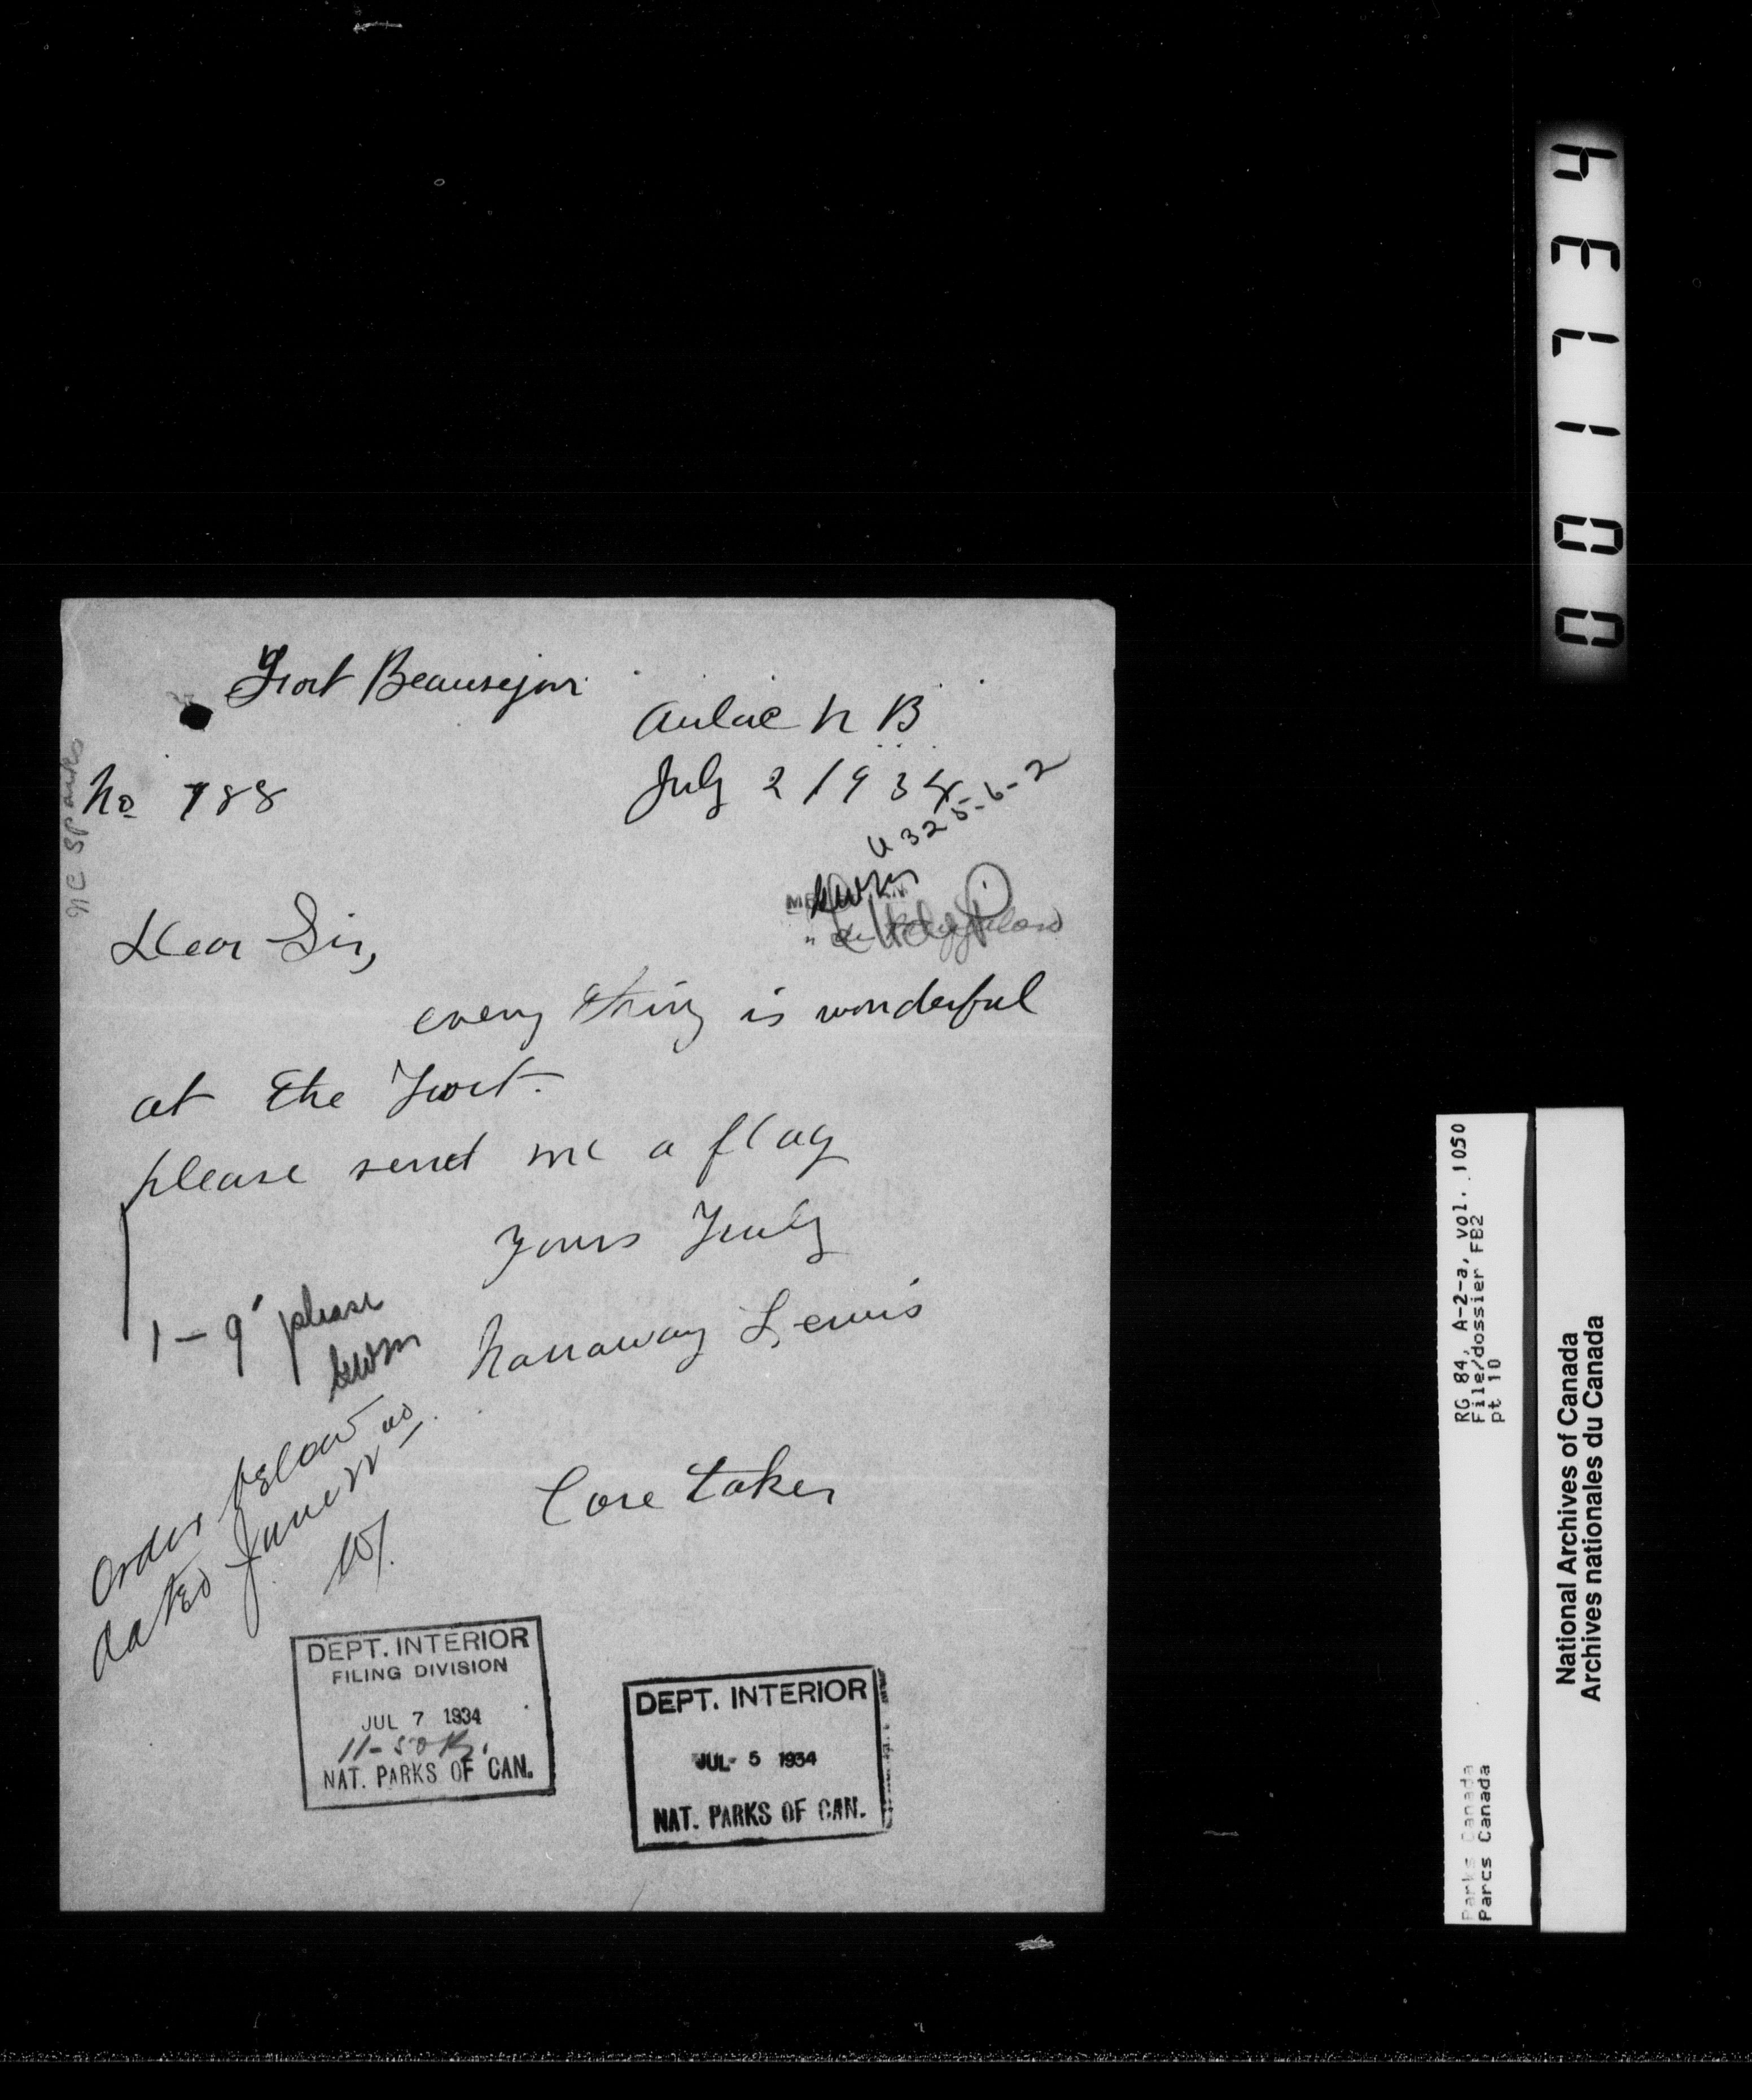 Fort Beausejour
Aulac N B
No 788
July 2 1934
U325-6-2
Dear Sir,
every thing is wonderful
at the Fort.
please send me a flag
yours Truly
1 - 9' please
Hannaway Lewis
order below as
dated June 22
Care taker
DEPT. INTERIOR
FILING DIVISION
JUL 7 1934
11-50
NAT. PARKS OF CAN.
DEPT. INTERIOR
JUL - 5 1934
NAT. PARKS OF CAN.
001734
RG 84, A-2-a, vol. 1050
File/dossier FB2
pt 10
Parks Canada
Parcs Canada
National Archives of Canada
Archives nationales du Canada